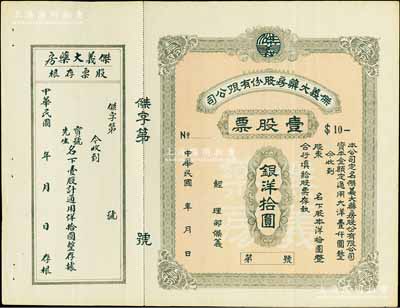 傑義
傑義大藥房股份有限公司
壹股票
$10-
No
本公司定名傑義大藥房股份有限公司
資本金額定通用大洋壹仟圓整
今收到
股東 名下股本洋拾圓整
合行填給股票存執
銀洋拾圓
經理鄒傑義
中華民國 年 月 日
第 號
傑字第 號
傑義大藥房
股票存根
傑字第 號
今收到
寶號
先生 名下壹股計通用洋拾圓整存據
中華民國 年 月 日 存根